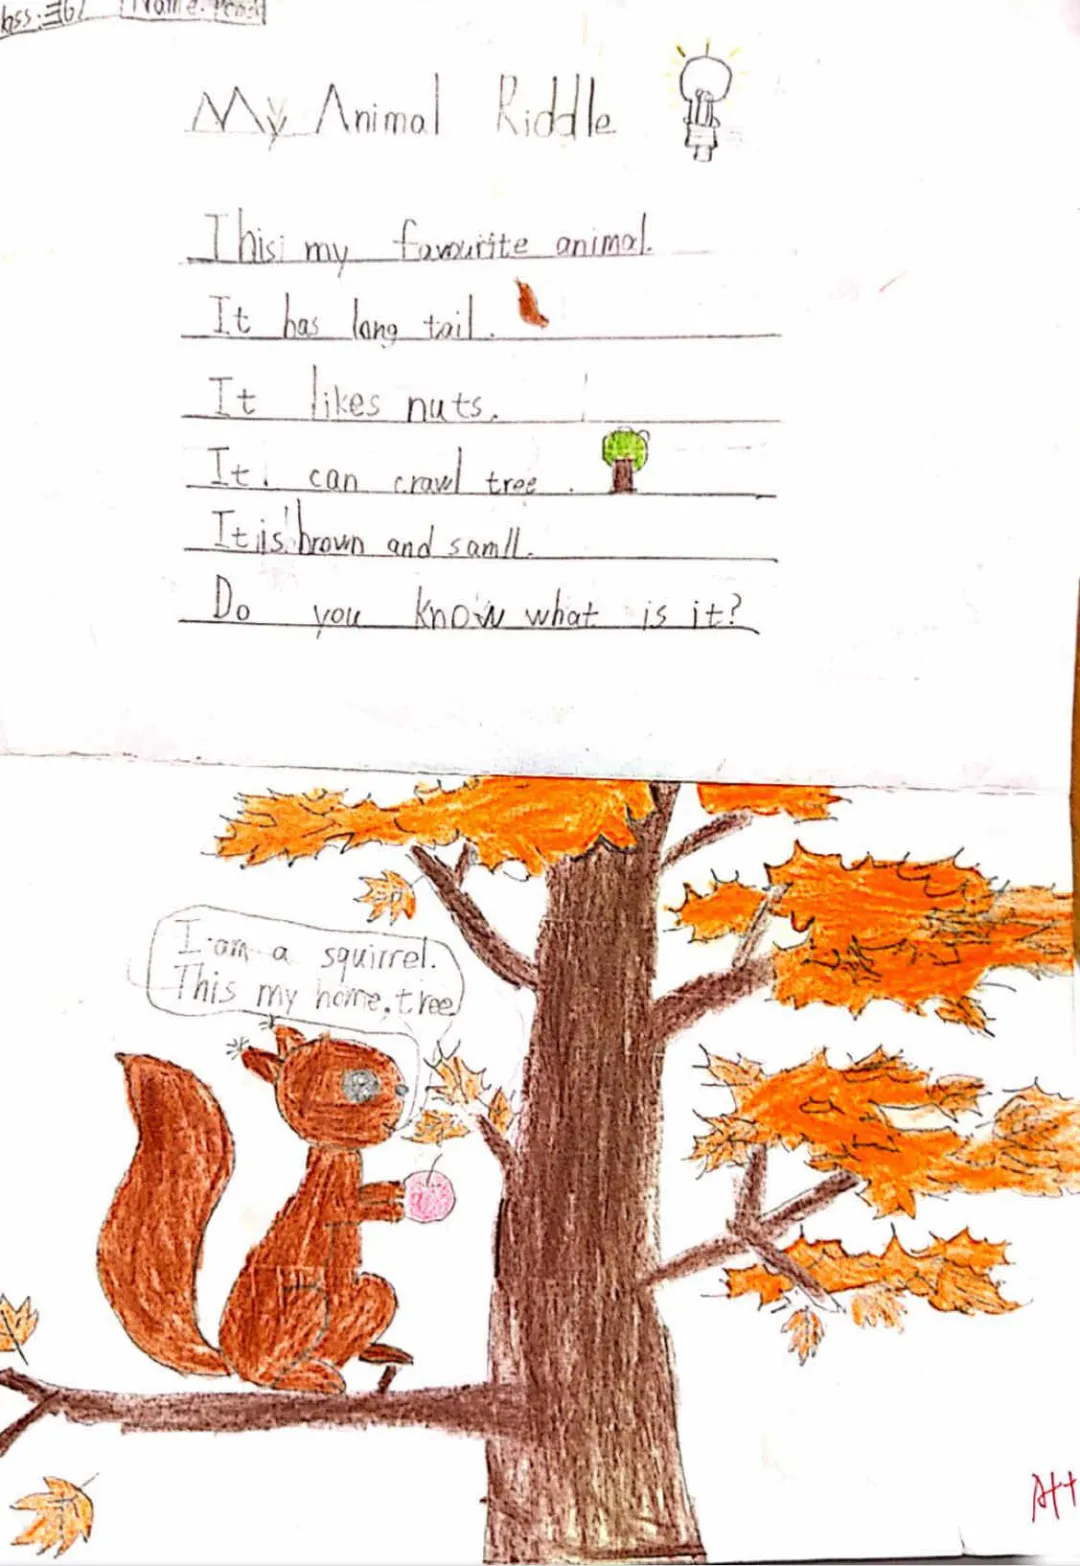 Name:
My Animal Riddle
This my favourite animal.
It has long tail.
It likes nuts.
It can crawl tree.
It is brown and samll.
Do you know what is it?
I am a squirrel.
This my home, tree
A++